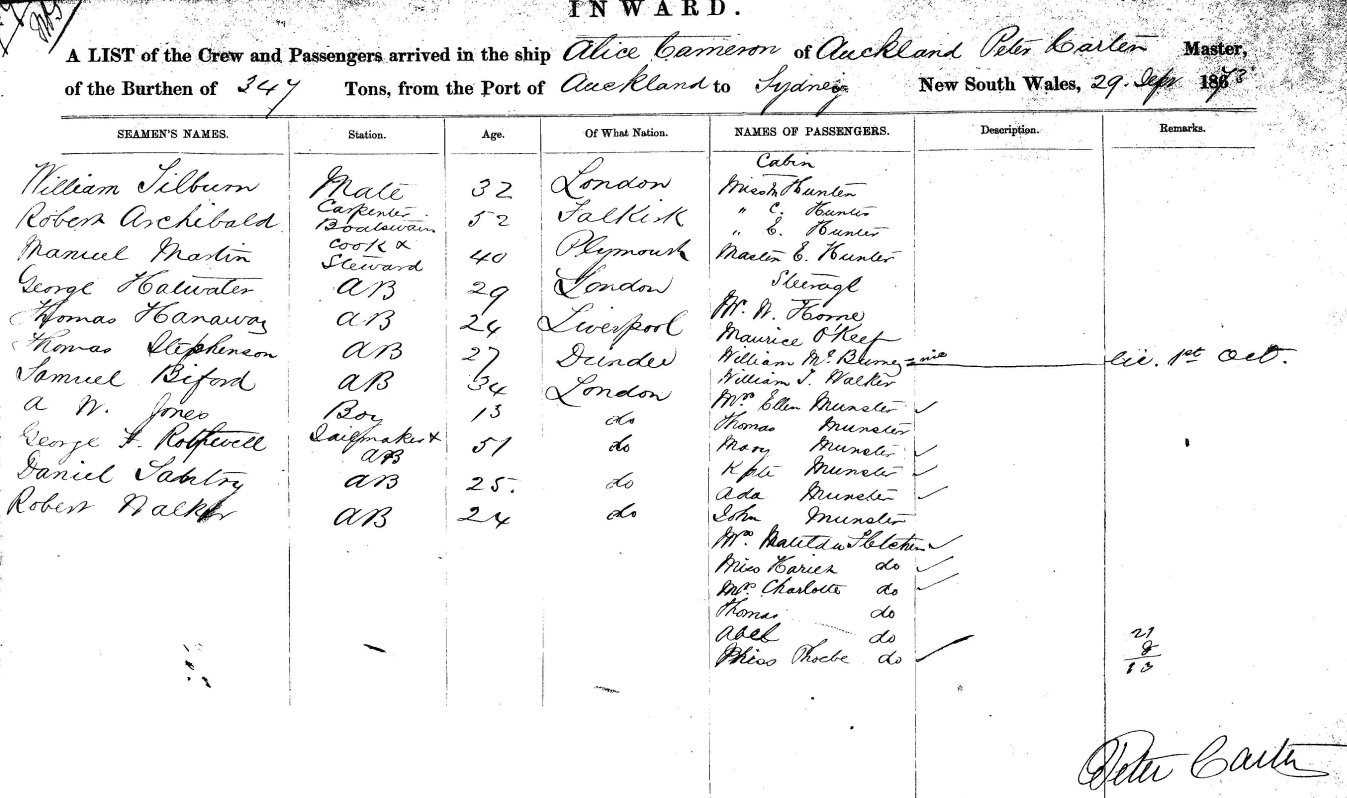 INWARD.
A LIST of the Crew and Passengers arrived in the ship Alice Cameron of Auckland Peter Carter Master,
of the Burthen of 347 Tons, from the Port of Auckland to Sydney New South Wales, 29. Sepr 1873
SEAMEN'S NAMES. Station. Age. Of What Nation. NAMES OF PASSENGERS. Description. Remarks.
Cabin
William Tilburn Mate 32 London Miss Hunter
" C. Hunter
Robert Archibald Carpenter Boatswain 52 Falkirk " E. Hunter
Manuel Martin Cook & Steward 40 Plymouth Master E. Hunter
George Halwater AB 29 London Steerage
Mr. W. Horne
Thomas Hanaway AB 24 Liverpool Maurice O'Keef
Thomas Stephenson AB 27 Dundee William Mc. 1st Oct.
William J. Walker
Samuel Biford AB 34 London Mrs Ellen Munster
A W. Jones Boy 13 do Thomas Munster
George F. Rothewell Sailmaker & AB 51 do Mary Munster
Kate Munster
Daniel AB 25. do Ada Munster
Robert Walker AB 24 do John Munster
Mrs. Matilda Fletcher
Miss do
Mrs. Charlotte do
Thomas do
Abel do
Miss Phoebe do
21
8
13
Peter Carter